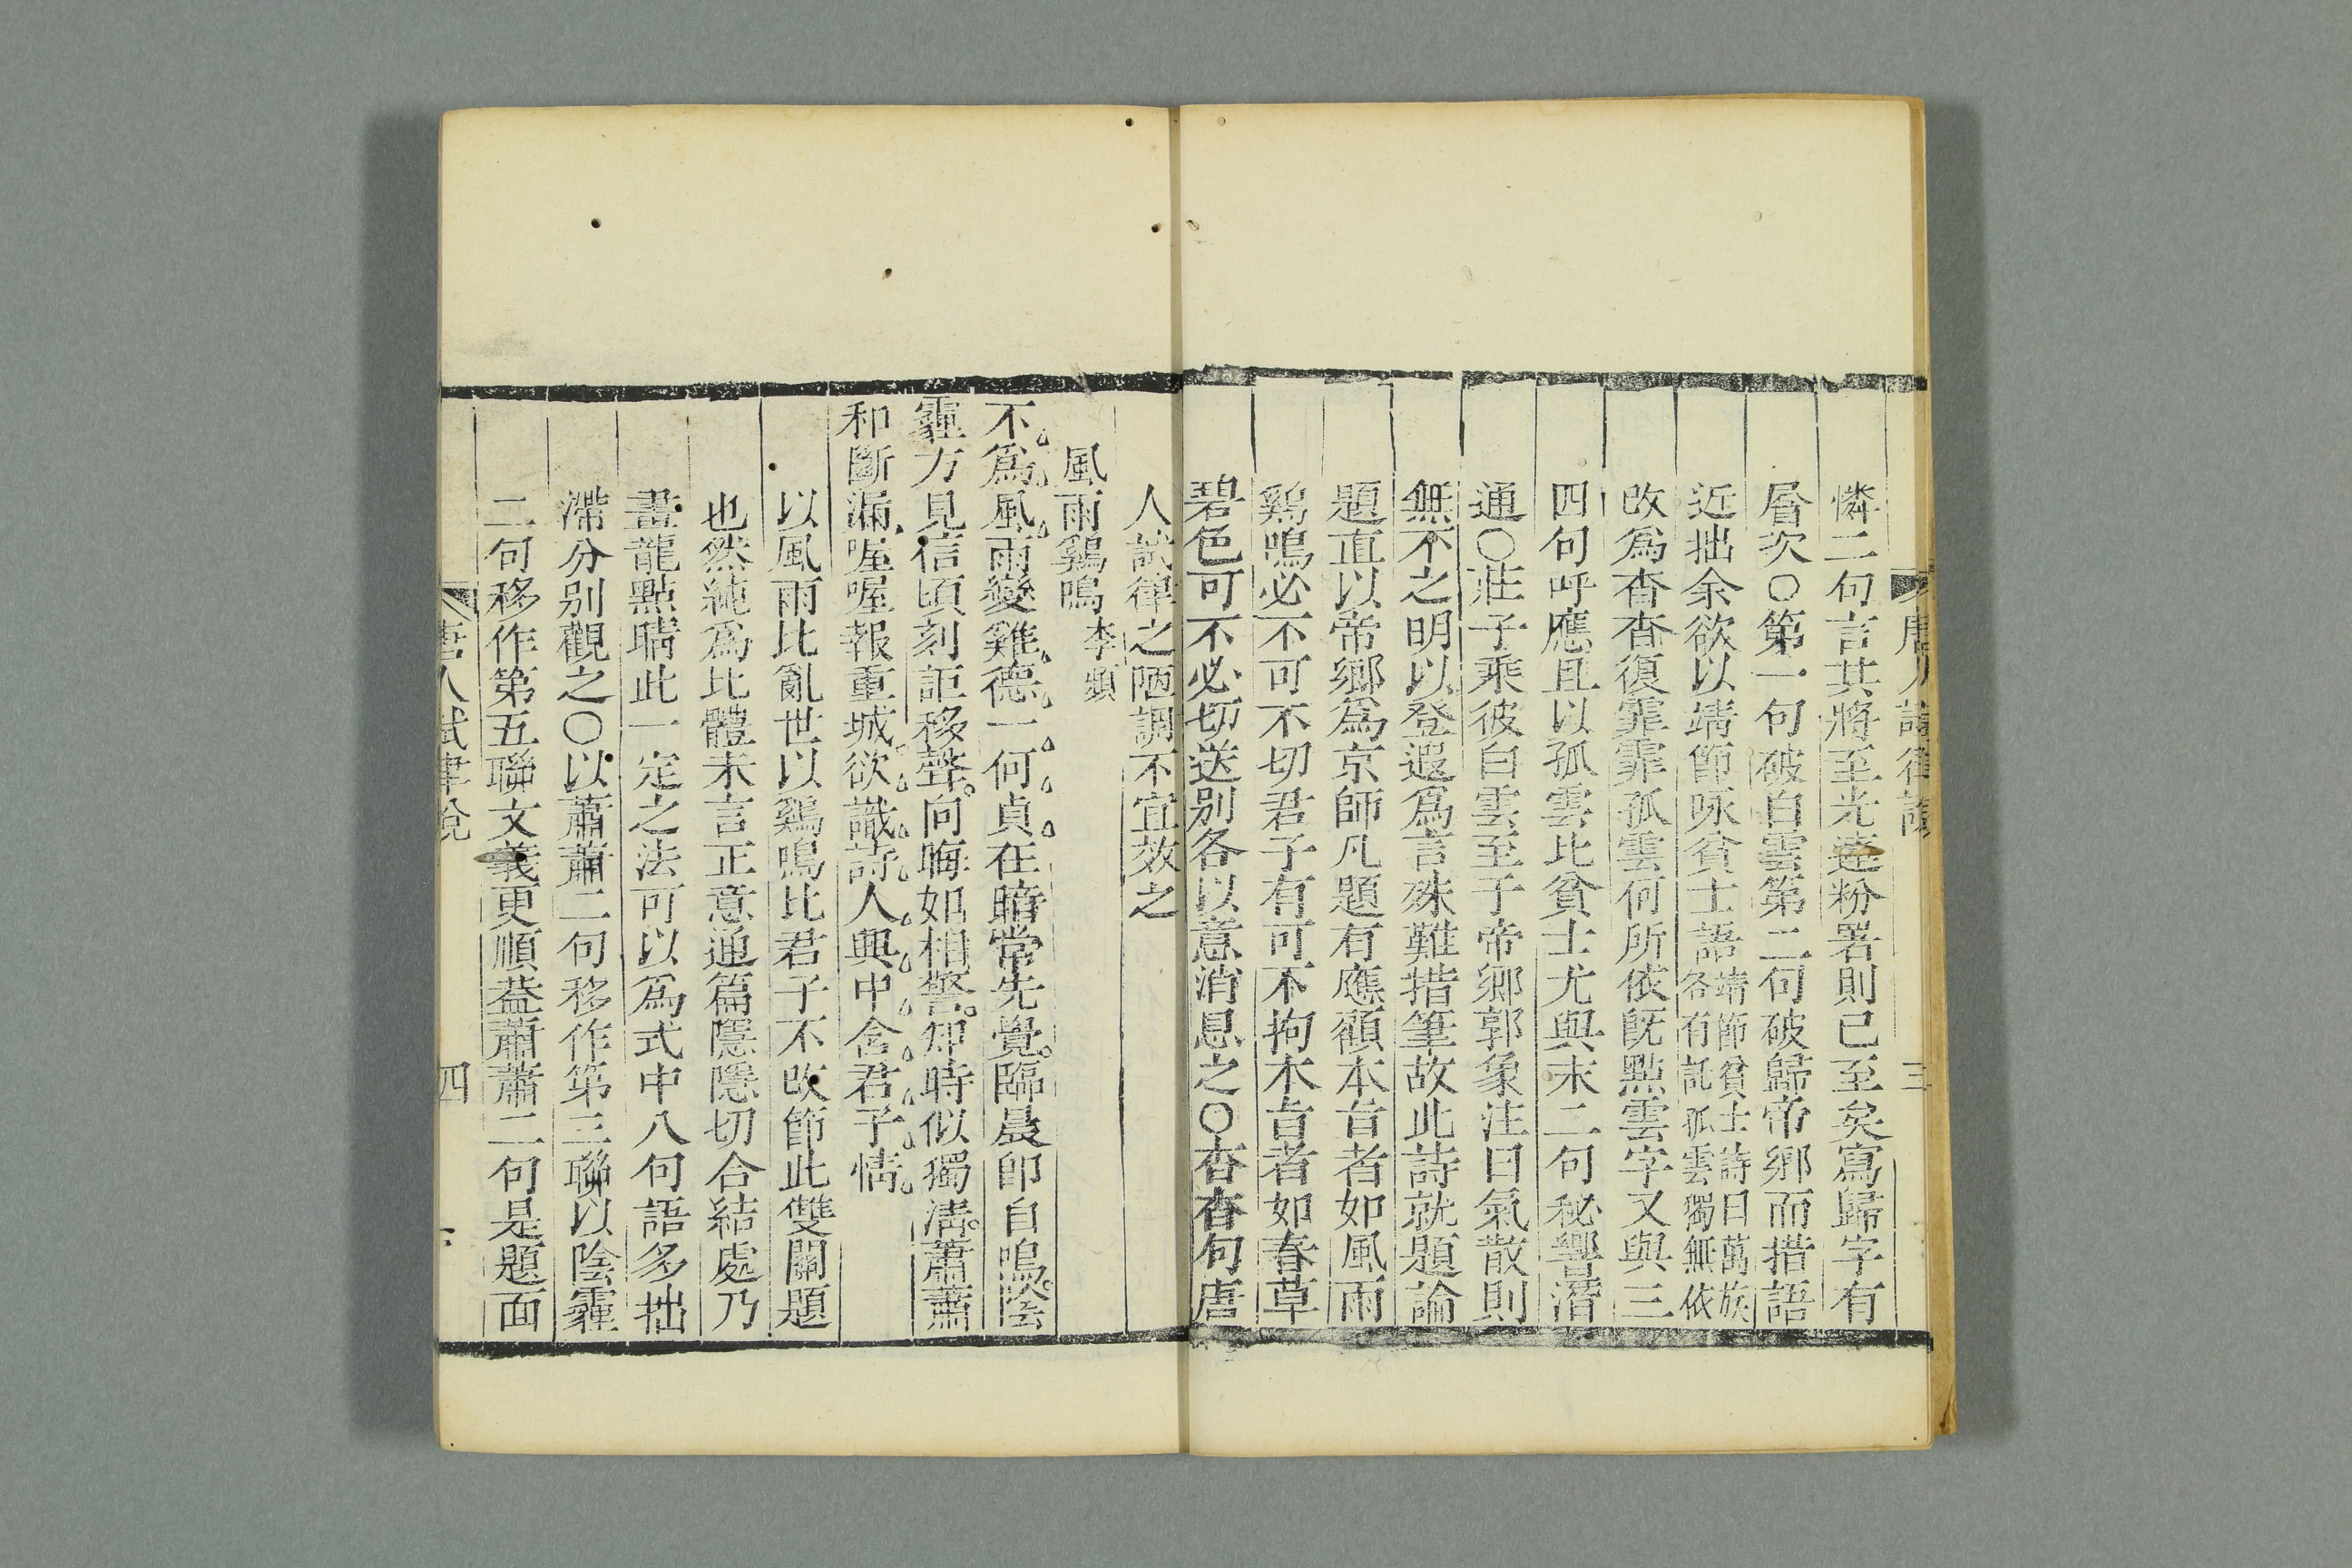 憐二句言其將至光達粉署則已至矣寫歸字有
層次○第一句破白雲第二句破歸帝鄉而措語
近拙余欲以靖節咏貧士語靖節貧士詩曰萬族各有託孤雲獨無依
改爲杳杳復霏霏孤雲何所依既點雲字又與三
四句呼應且以孤雲比貧士尤與末二句秘響潛
通○莊子乘彼白雲至于帝鄉郭象注曰氣散則
無不之明以登遐爲言殊難措筆故此詩就題論
題直以帝鄉爲京師凡題有應顧本旨者如風雨
鷄鳴必不可不切君子有可不拘本旨者如春草
碧色可不必切送別各以意消息之○杳杳句唐
人試律之陋調不宜效之
風雨鷄鳴 李頻
不爲風雨變雞德一何貞在暗常先覺臨晨卽自鳴陰
霾方見信頃刻詎移聲向晦如相警知時似獨淸蕭蕭
和斷漏喔喔報重城欲識詩人興中含君子情
以風雨比亂世以鷄鳴比君子不改節此雙關題
也然純爲比體未言正意通篇隱隱切合結處乃
畫龍點睛此一定之法可以爲式中八句語多拙
滯分别觀之○以蕭蕭二句移作第三聯以陰霾
二句移作第五聯文義更順葢蕭蕭二句是題面
唐人試律說
四